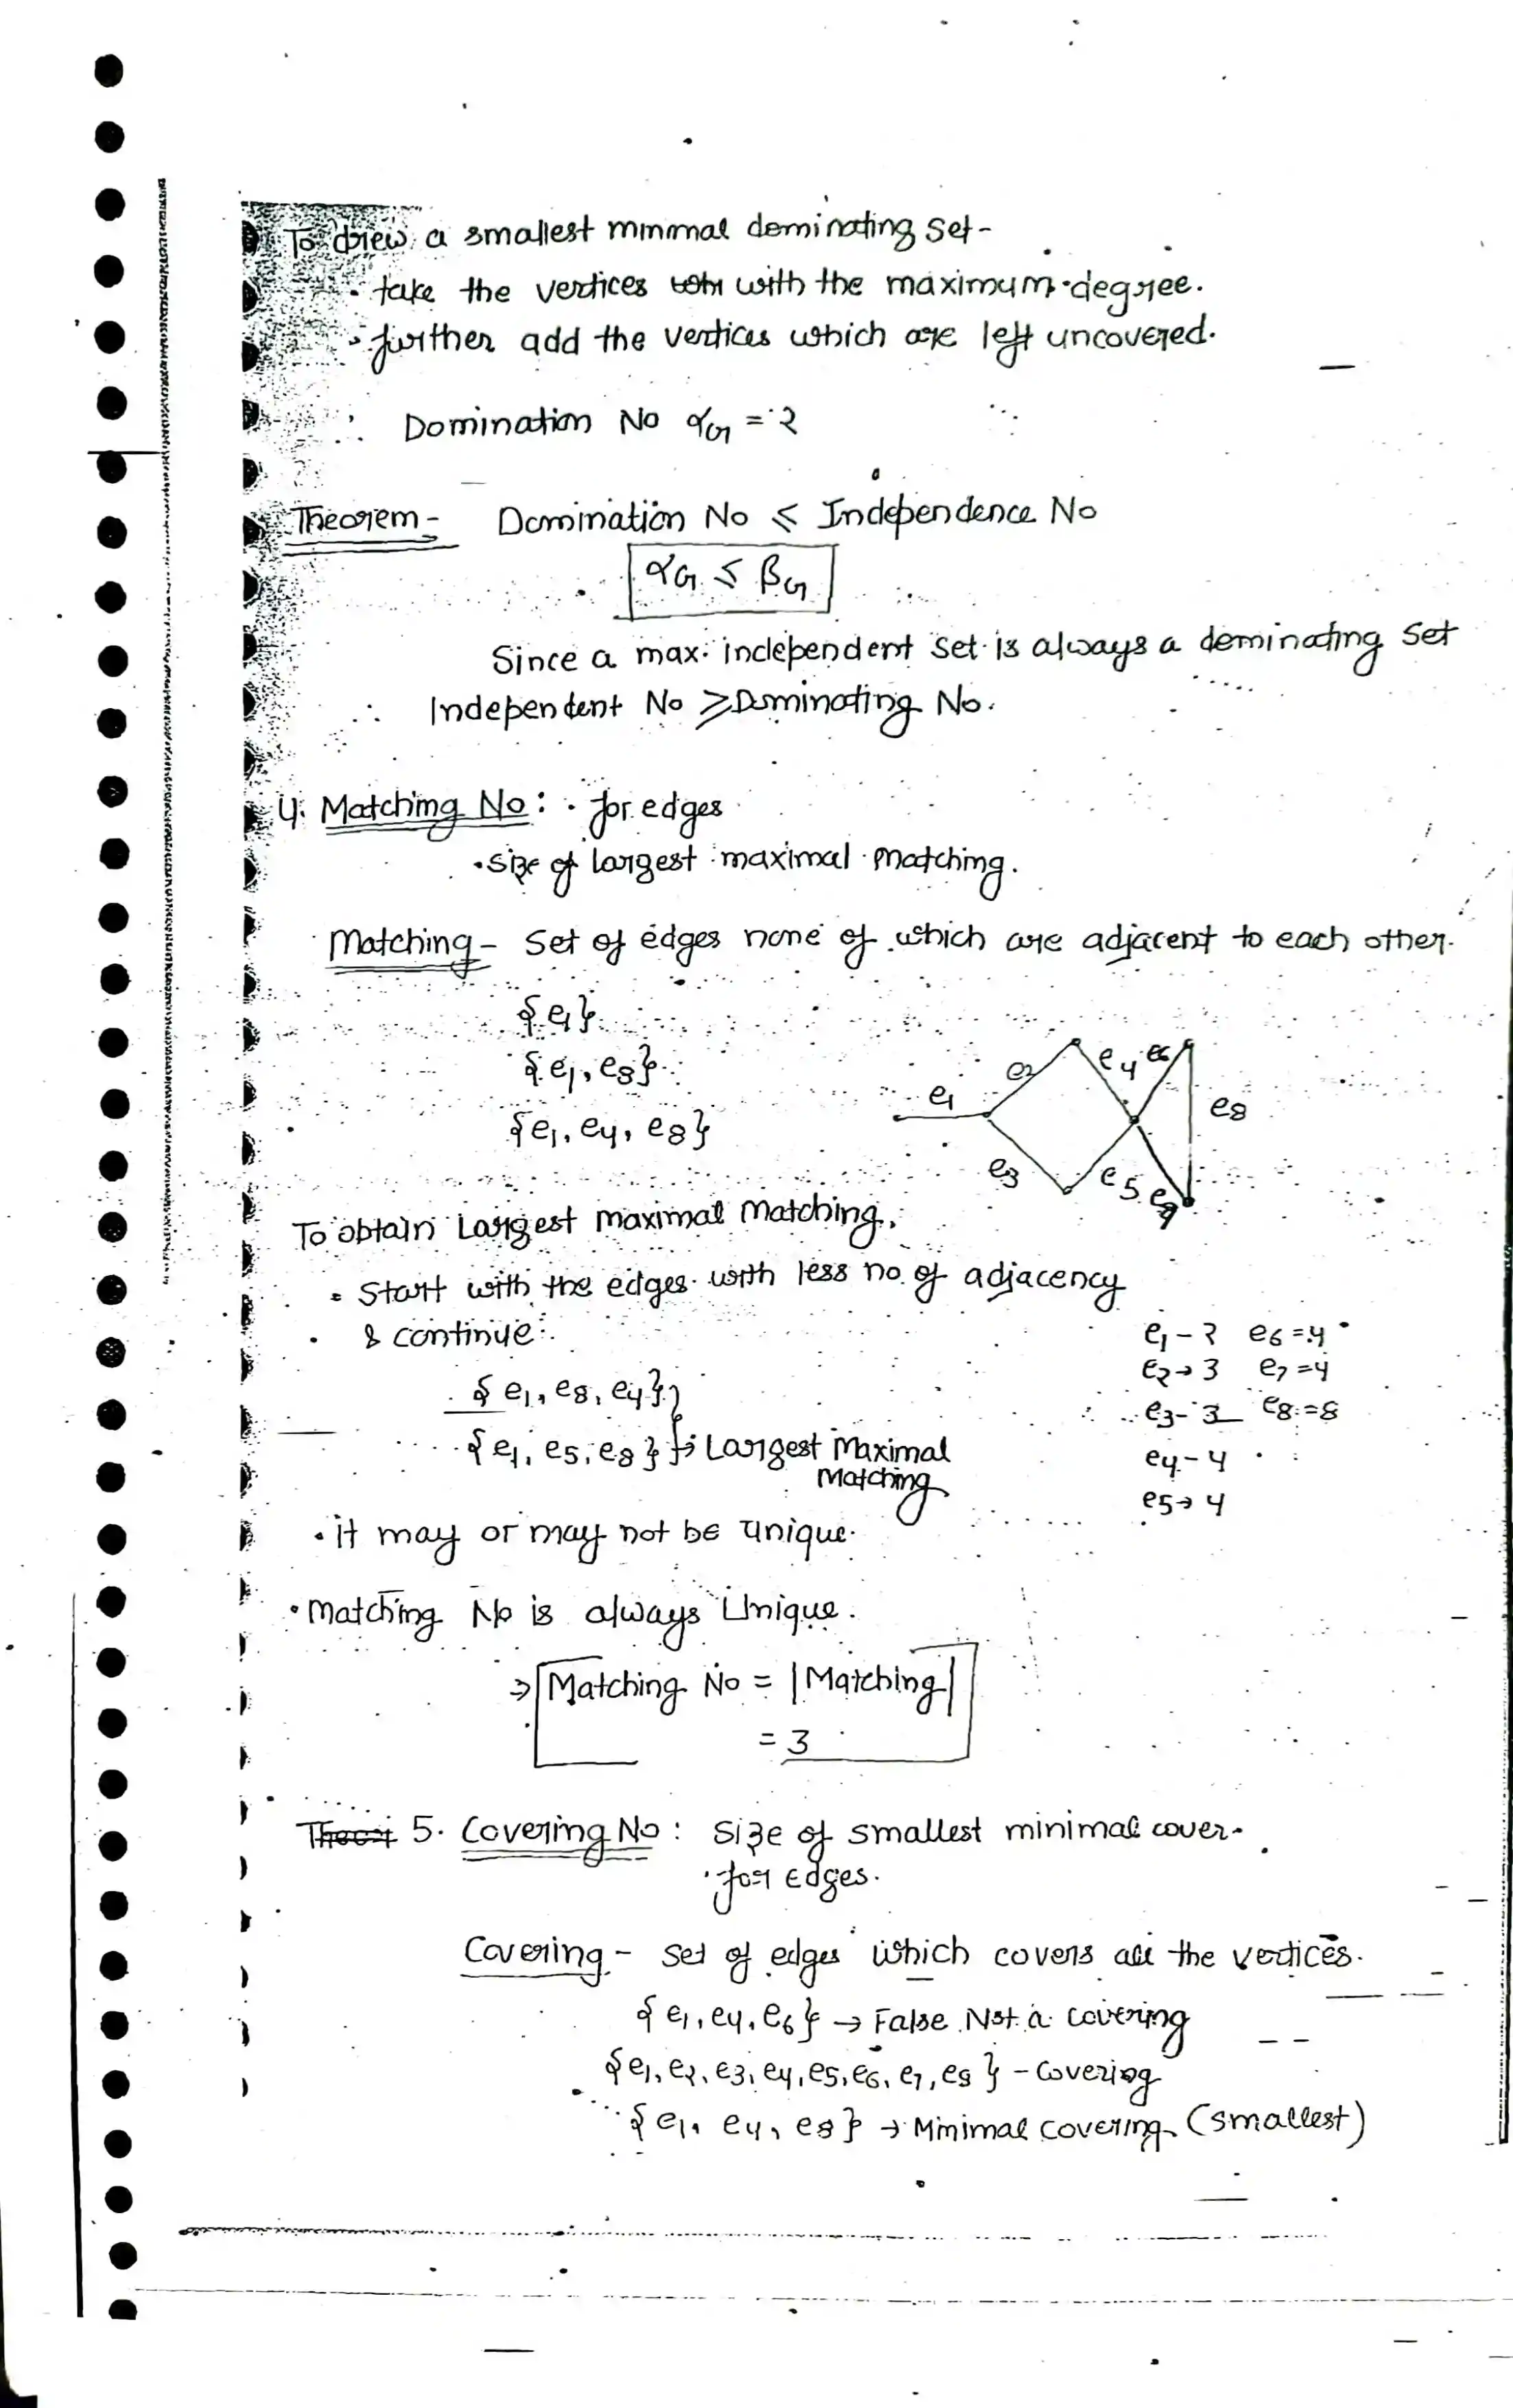 To drew a smallest minimal dominating set -
• take the vertices with the maximum degree.
• further add the vertices which are left uncovered.
∴ Domination No αG = 2
Theorem - Domination No ≤ Independence No
αG ≤ βG
Since a max. independent set is always a dominating set
∴ Independent No ≥ Dominating No.
4. Matching No : • for edges
• size of largest maximal matching.
Matching - Set of edges none of which are adjacent to each other.
{e1}
{e1, e8}
{e1, e4, e8}
e1 e2 e3 e4 e5 e6 e7 e8
To obtain Largest maximal matching,
• Start with the edges with less no. of adjacency
& continue
e1 - 2 e6 = 4
e2 → 3 e7 = 4
e3 - 3 e8 = 8
e4 - 4
e5 → 4
{e1, e8, e4}
{e1, e5, e8} → Largest Maximal Matching
• it may or may not be unique.
• Matching No is always Unique.
⇒ Matching No = |Matching|
= 3
Theor 5. Covering No : Size of smallest minimal cover.
• for edges.
Covering - Set of edges which covers all the vertices.
{e1, e4, e6} → False Not a covering
{e1, e2, e3, e4, e5, e6, e7, e8} - Covering
{e1, e4, e8} → Minimal covering (smallest)